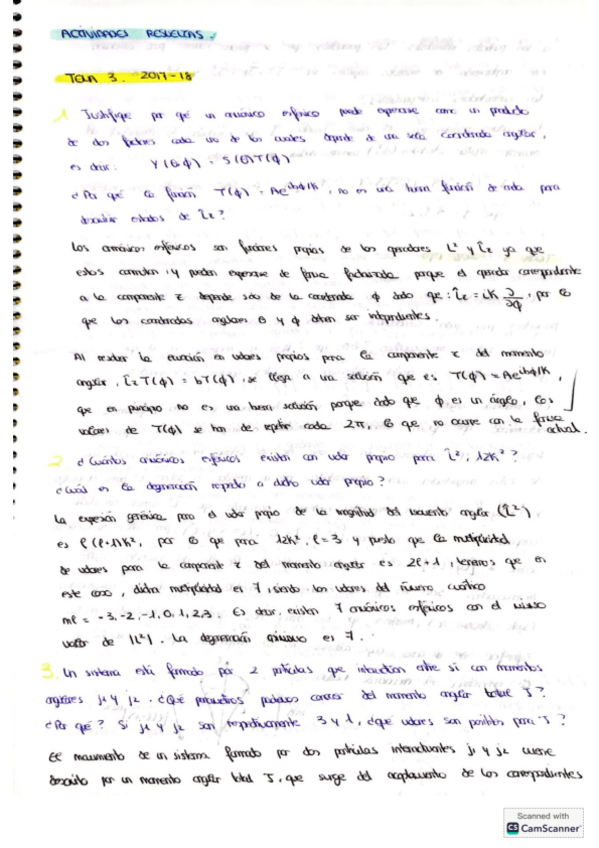 ACTIVIDADES RESUELTAS.
TEMA 3. 2017-18
1. Justifique por qué un armónico esférico puede expresarse como un producto
de dos factores cada uno de los cuales depende de una sola coordenada angular,
es decir: Y(θ,ϕ) = S(θ)T(ϕ)
¿Por qué la función T(ϕ) = Ae^{ibϕ/ħ}, no es una buena función de onda para
describir estados de L̂z?
Los armónicos esféricos son funciones propias de los operadores L² y L̂z ya que
estos conmutan, y pueden expresarse de forma factorizada porque el operador correspondiente
a la componente z depende solo de la coordenada ϕ dado que: L̂z = iħ ∂/∂ϕ, por lo
que las coordenadas angulares θ y ϕ deben ser independientes.
Al resolver la ecuación en valores propios para la componente z del momento
angular, L̂z T(ϕ) = bT(ϕ), se llega a una solución que es T(ϕ) = Ae^{ibϕ/ħ},
que en principio no es una buena solución porque dado que ϕ es un ángulo, los
valores de T(ϕ) se han de repetir cada 2π, lo que no ocurre con la forma
actual.
2. ¿Cuántos armónicos esféricos existen con valor propio para L̂², 12ħ²?
¿Cuál es la degeneración respecto a dicho valor propio?
La expresión genérica para el valor propio de la magnitud del momento angular (L̂²)
es ℓ(ℓ+1)ħ², por lo que para 12ħ², ℓ=3 y puesto que la multiplicidad
de valores para la componente z del momento angular es 2ℓ+1, tenemos que en
este caso, dicha multiplicidad es 7, siendo los valores del número cuántico
mℓ = -3, -2, -1, 0, 1, 2, 3. Es decir, existen 7 armónicos esféricos con el mismo
valor de |L²|. La degeneración es 7.
3. Un sistema está formado por 2 partículas que interactúan entre sí con momentos
angulares j1 y j2. ¿Qué parámetros podemos conocer del momento angular total J?
¿Por qué? Si j1 y j2 son respectivamente 3 y 1, ¿qué valores son posibles para J?
El movimiento de un sistema formado por dos partículas interactuantes j1 y j2 viene
descrito por un momento angular total J, que surge del acoplamiento de los correspondientes
Scanned with
CS CamScanner